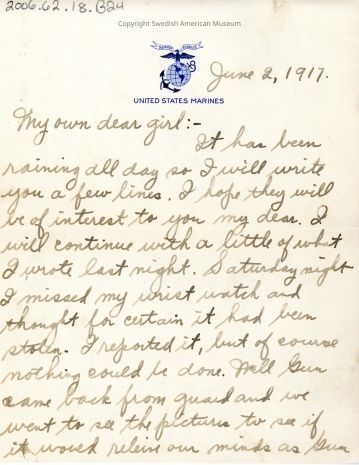 2006.62.18.B24
Copyright Swedish American Museum
SEMPER FIDELIS
June 2, 1917.
UNITED STATES MARINES
My own dear girl:-
It has been
raining all day so I will write
you a few lines. I hope they will
be of interest to you my dear. I
will continue with a little of what
I wrote last night. Saturday night
I missed my wrist watch and
thought for certain it had been
stolen. I reported it, but of course
nothing could be done. Well Gun
came back from guard and we
went to see the pictures to see if
it would releive our minds as Gun